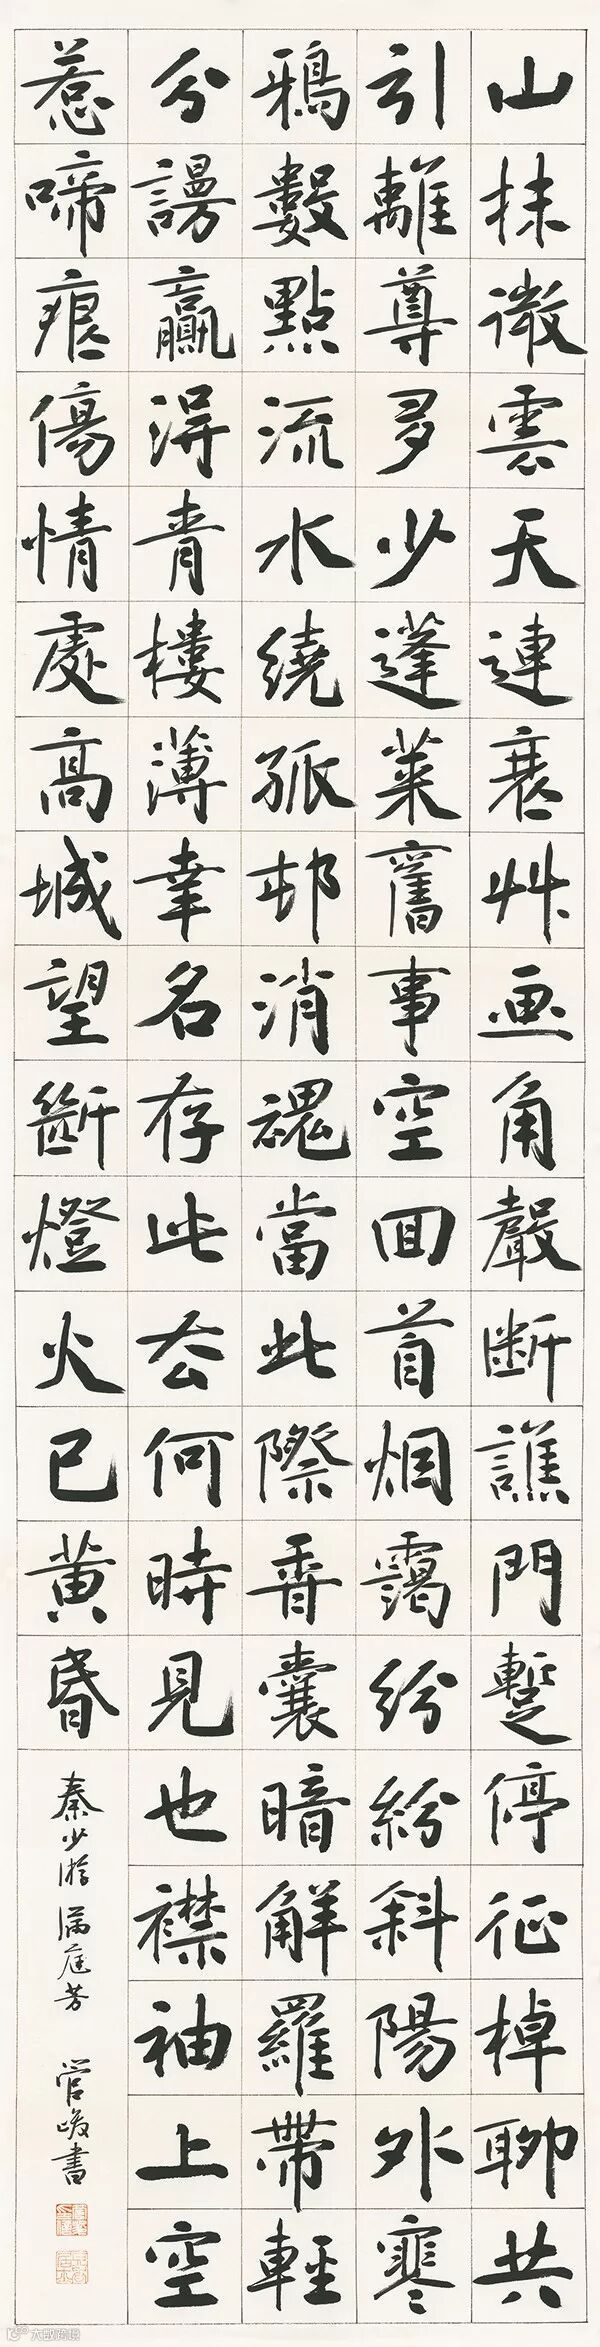 山抹微雲天連衰艸画角聲断譙門蹔停征棹聊共
引離尊多少蓬萊舊事空回首烟靄紛紛斜陽外寒
鴉數點流水繞孤邨消魂當此際香囊暗解羅帶輕
分謾贏得青樓薄幸名存此去何時見也襟袖上空
惹啼痕傷情處高城望斷燈火已黃昏
秦少游滿庭芳 管峻書
大数跨境